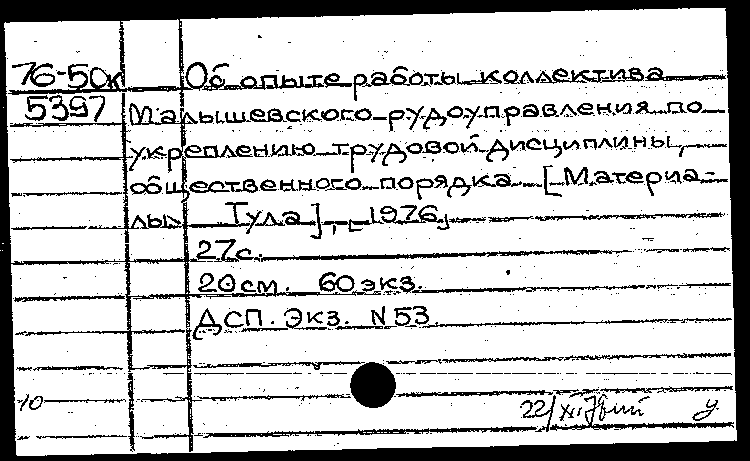 76-50к Об опыте работы коллектива
5397 Малышевского рудоуправления по
укреплению трудовой дисциплины,
общественного порядка. [Материа-
лы. Тула], [1976]
27с.
20см. 60 экз.
ДСП. Экз. N 53.
10
22/XI